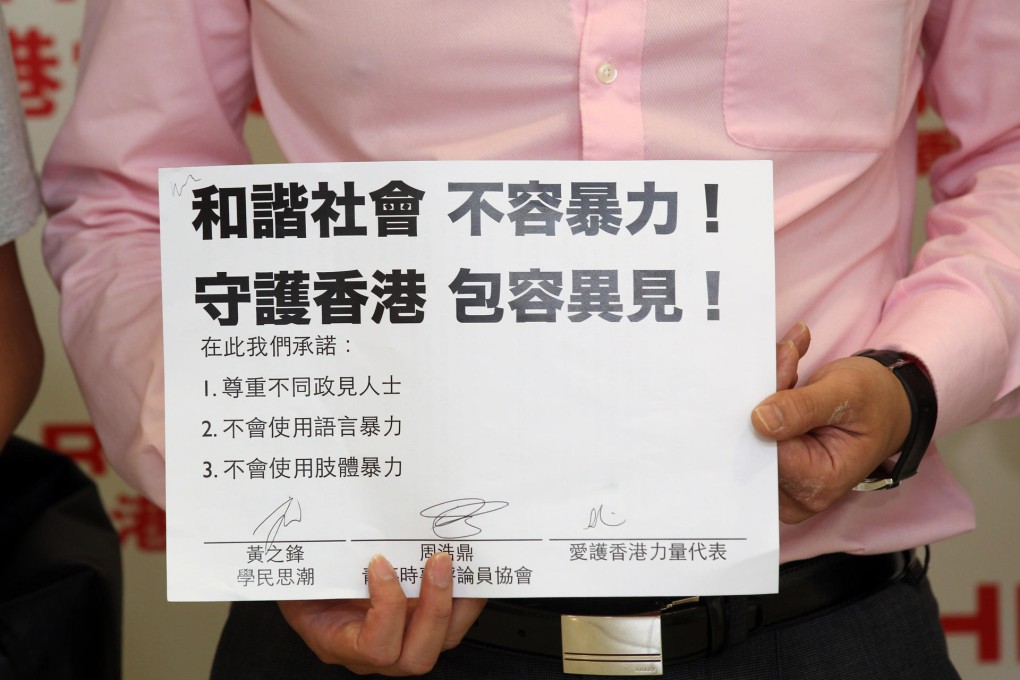 和諧社會 不容暴力！
守護香港 包容異見！
在此我們承諾：
1. 尊重不同政見人士
2. 不會使用語言暴力
3. 不會使用肢體暴力
黃之鋒 周浩鼎 愛護香港力量代表
學民思潮 時事評論員協會
港
港